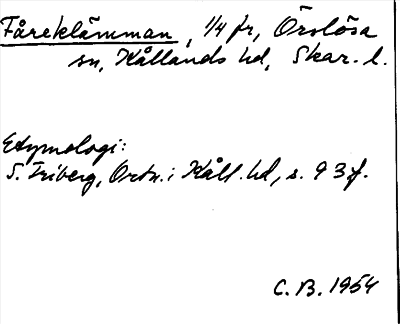 Fåreklämman, 1/4 fr, Örslösa
sn, Kållands hd, Skar. l.
Etymologi:
S. Friberg, Ortn. i Kåll. hd, s. 93 f.
C. B. 1954